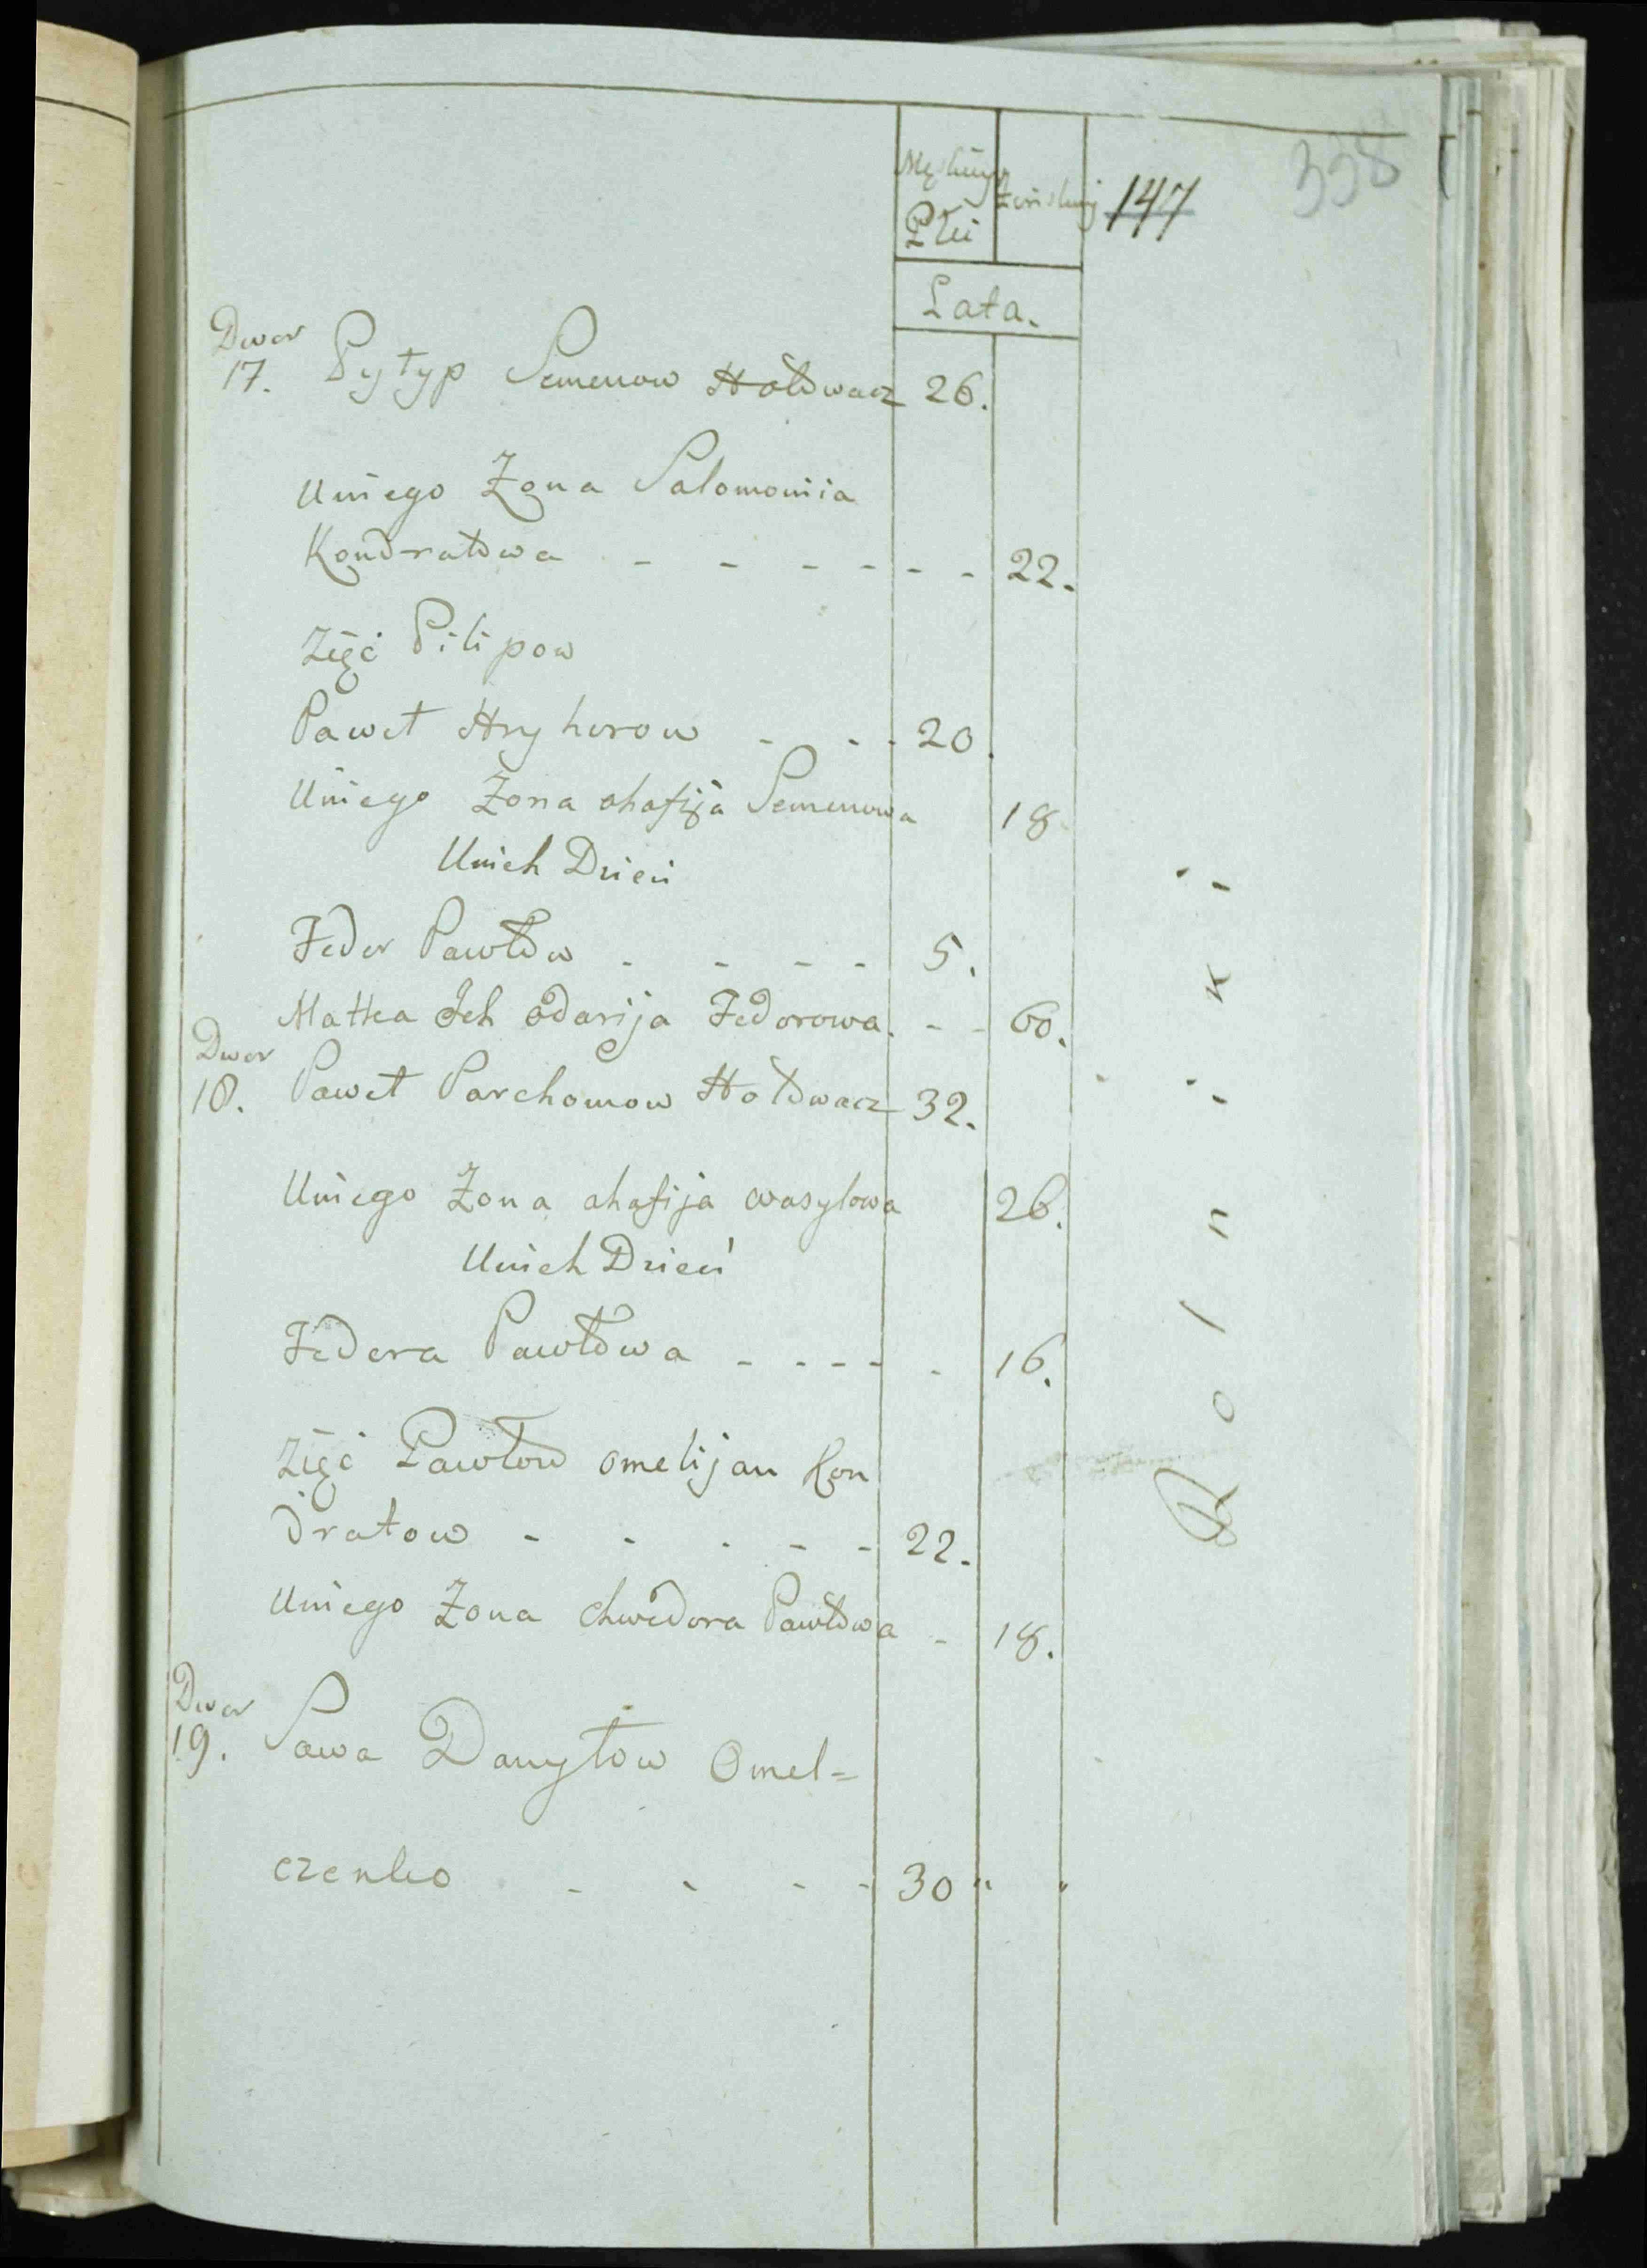 Męskiey Żeńskiey 147 338
Płci
Lata.
Dwor
17. Pyłyp Semenow Hołowacz 26.
Uniego Żona Salomoniia
Kondratowa - - - - - - 22.
Zięć Pilipow
Paweł Hryhorow - - - 20.
Uniego Żona ahafija Semenowa 18
Unich Dzieci
Fedor Pawłow - - - - 5.
Matka Ich odarija Fedorowa. - - 60.
Dwor
18. Paweł Parchomow Hołowacz 32.
Uniego Żona ahafija wasylowa 26.
Unich Dzieci
Fedora Pawłowa - - - - - 16.
Zięć Pawłow omelijan Kon
dratow - - - - - 22.
Uniego Żona chwedora Pawłowa - 18.
Dwor
19. Sawa Danyłow Omel=
czenko - - - - 30 " "
Rolniki